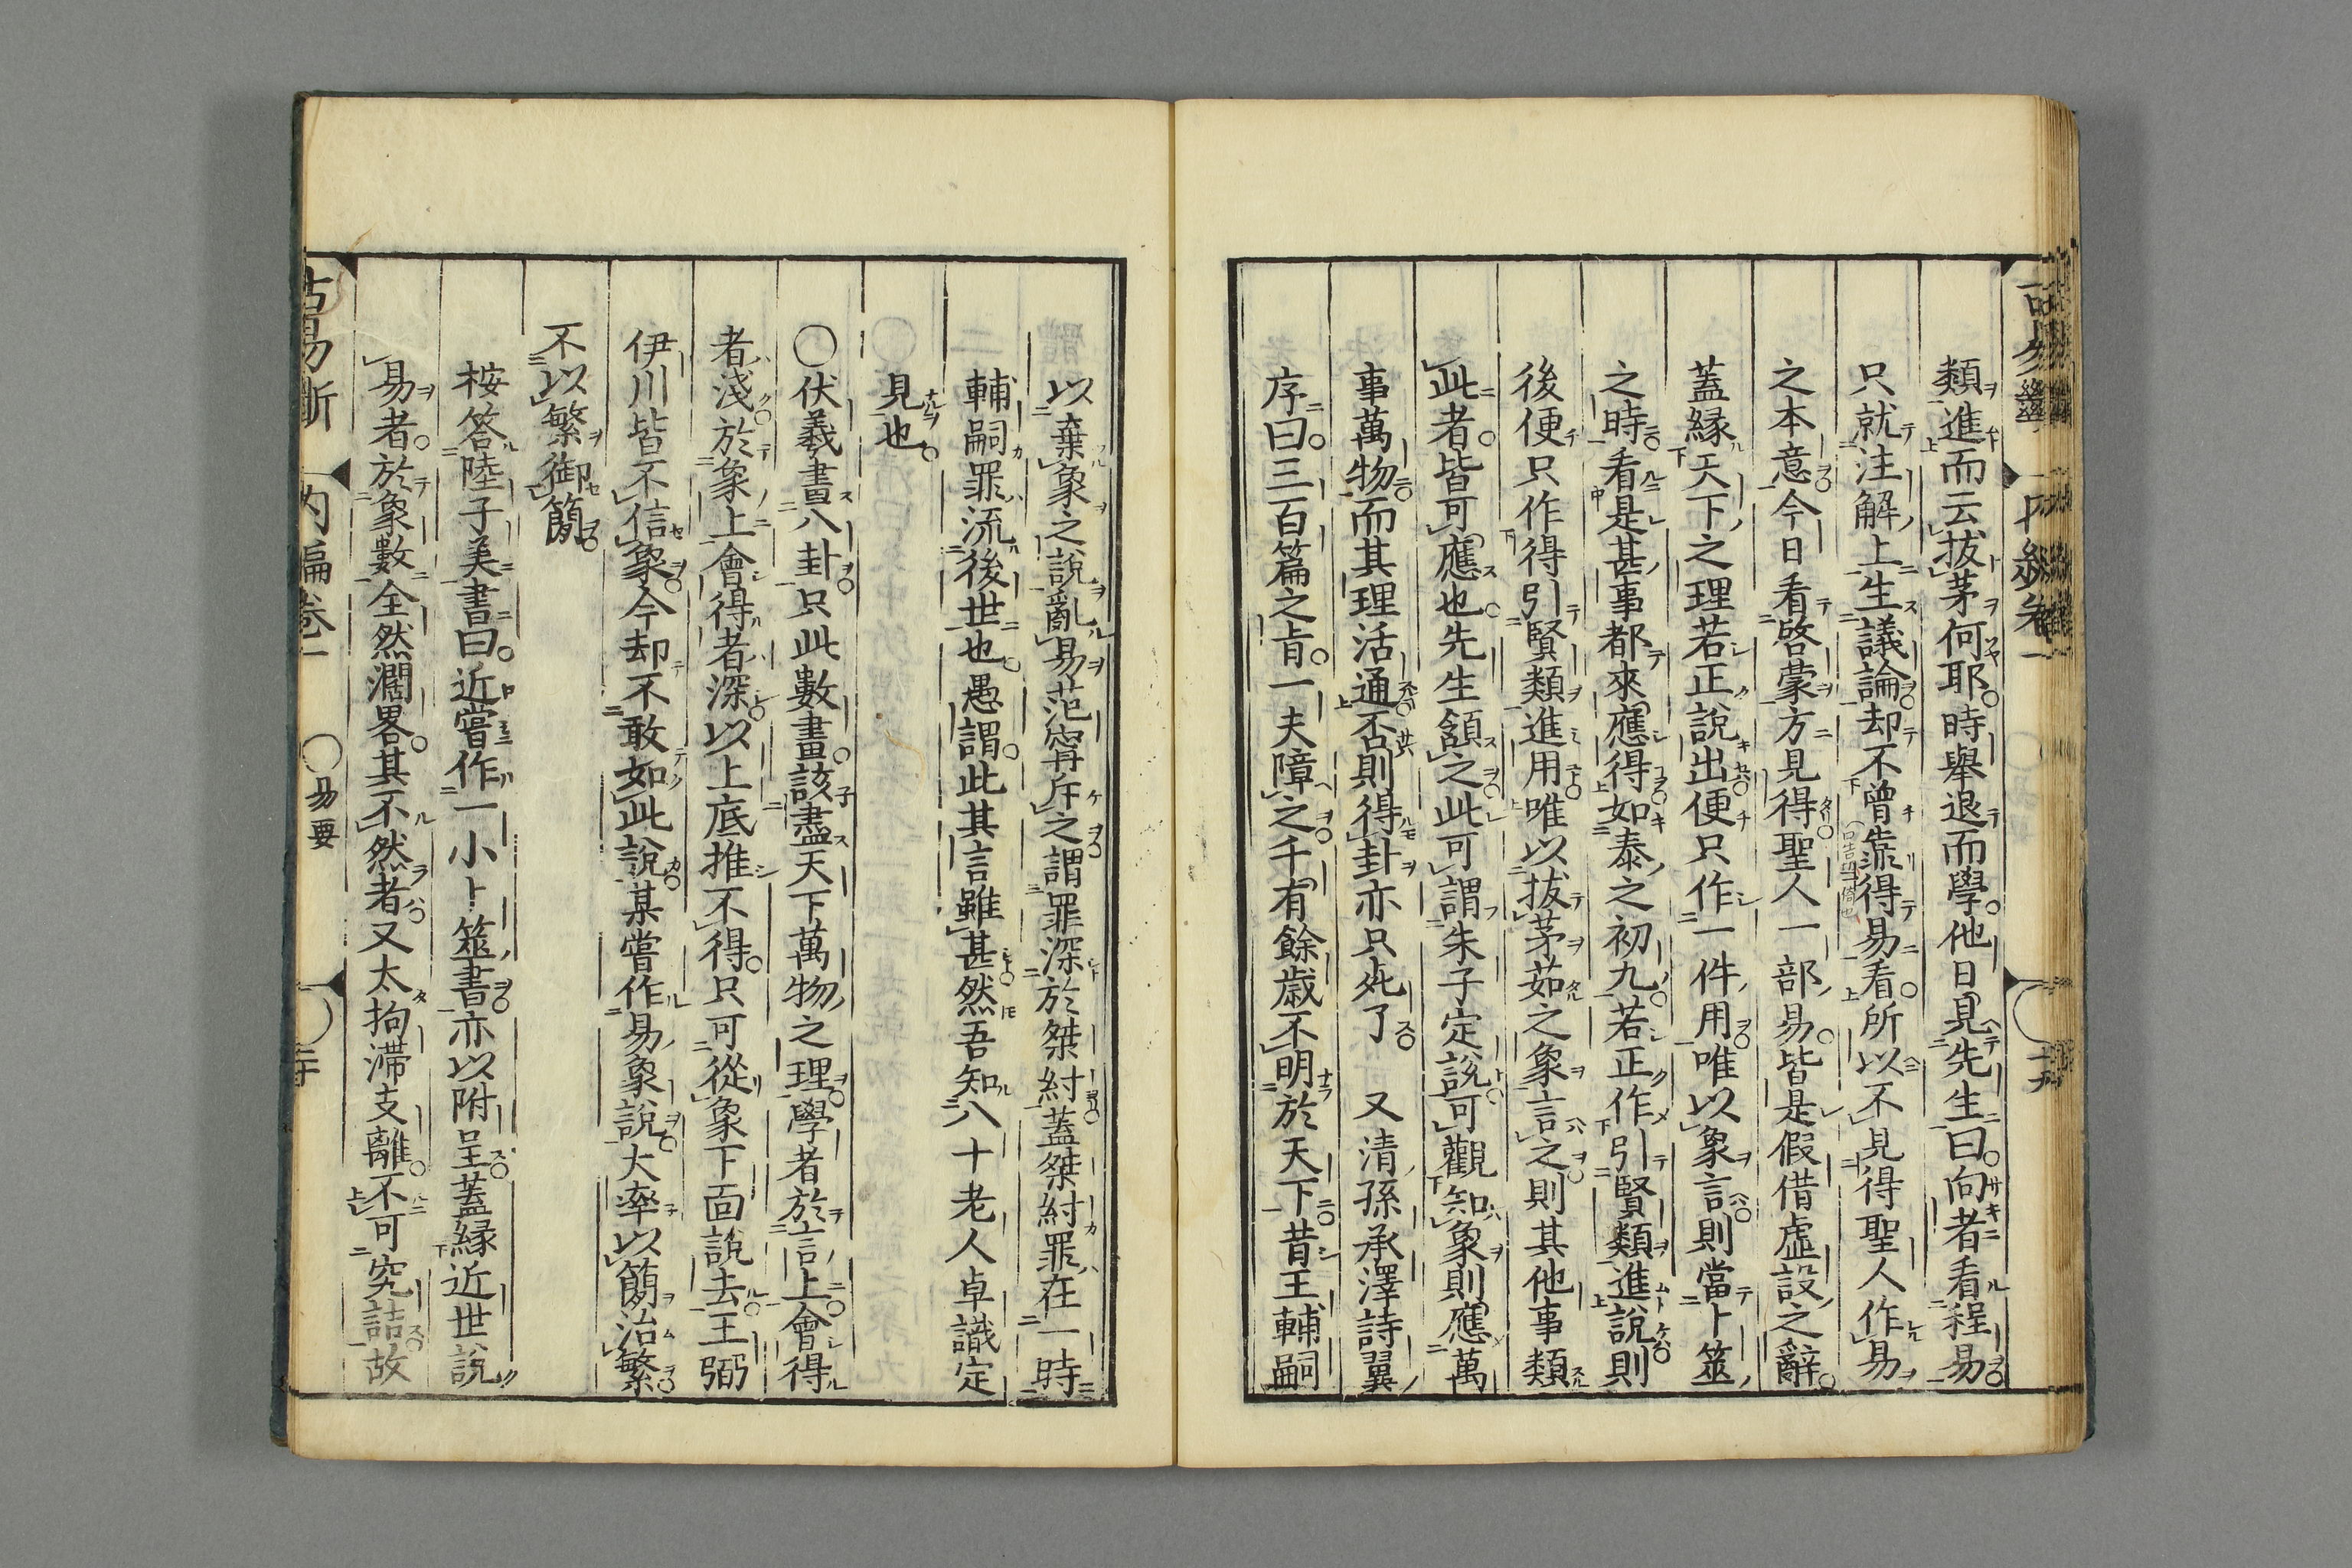 類進而云拔茅何耶時舉退而學他日見先生曰向者看程易
只就注解上生議論却不曾靠得易看所以不見得聖人作易
之本意今日看啓蒙方見得聖人一部易皆是假借虛設之辭
蓋縁天下之理若正說出便只作一件用唯以象言則當卜筮
之時看是甚事都來應得如泰之初九若正作引賢類進說則
後便只作得引賢類進用唯以拔茅茹之象言之則其他事類
此者皆可應也先生頷之此可謂朱子定說可觀知象則應萬
事萬物而其理活通否則得卦亦只死了　又清孫承澤詩翼
序曰三百篇之旨一夫障之千有餘歲不明於天下昔王輔嗣
以棄象之說亂易范甯斥之謂罪深於桀紂蓋桀紂罪在一時
輔嗣罪流後世也愚謂此其言雖甚然吾知八十老人卓識定
見也
〇伏羲畫八卦只此數畫該盡天下萬物之理學者於言上會得
者淺於象上會得者深以上底推不得只可從象下面說去王弼
伊川皆不信象今却不敢如此說某嘗作易象說大率以簡治繁
不以繁御簡
桉答陸子美書曰近嘗作一小卜筮書亦以附呈蓋縁近世說
易者於象數全然濶畧其不然者又太拘滯支離不可究詰故
古易斷　内編卷一　〇易要　二十